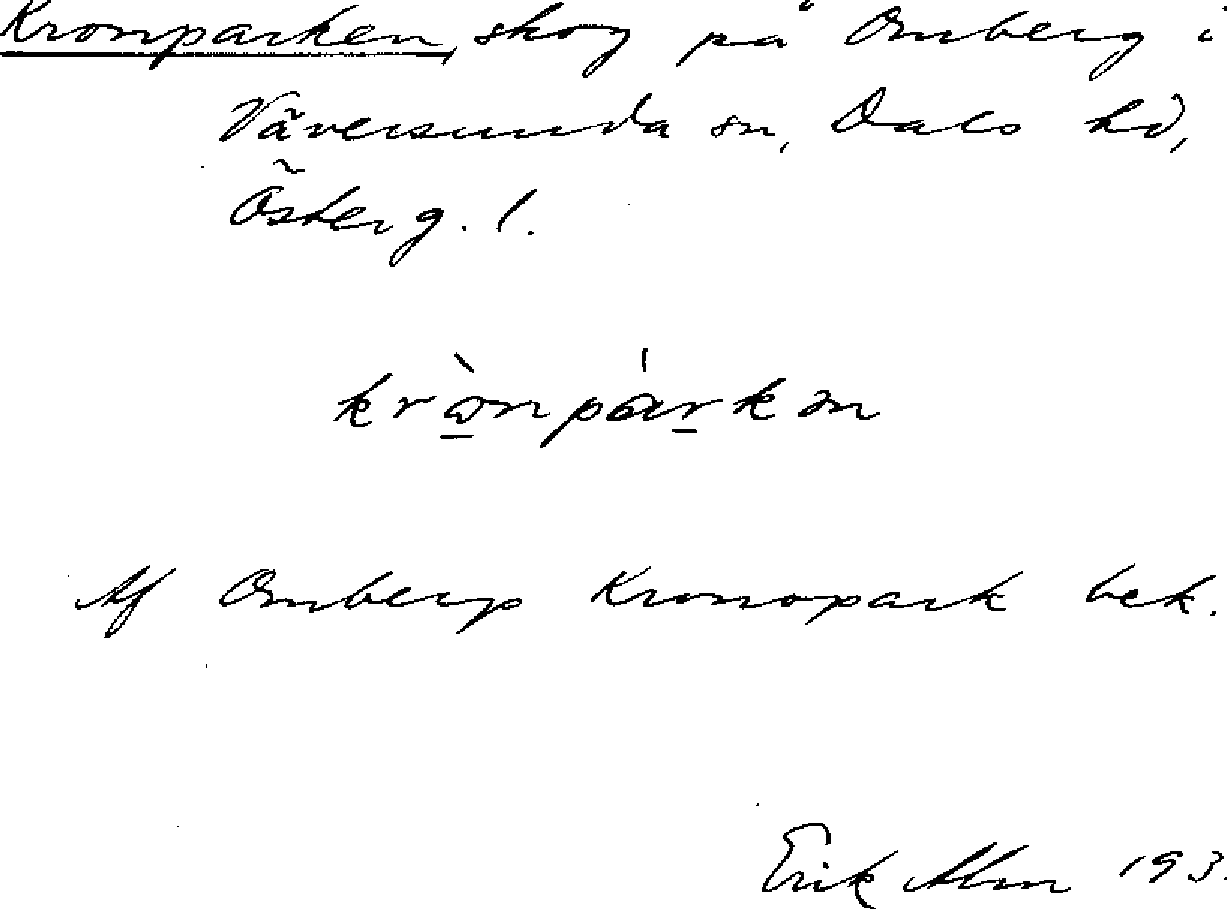 Kronparken, skog på Omberg i
Väversunda sn, Dals hd,
Österg. l.
krò̠npár̠kən
Af Ombergs Kronopark bek.
Erik Alm 193